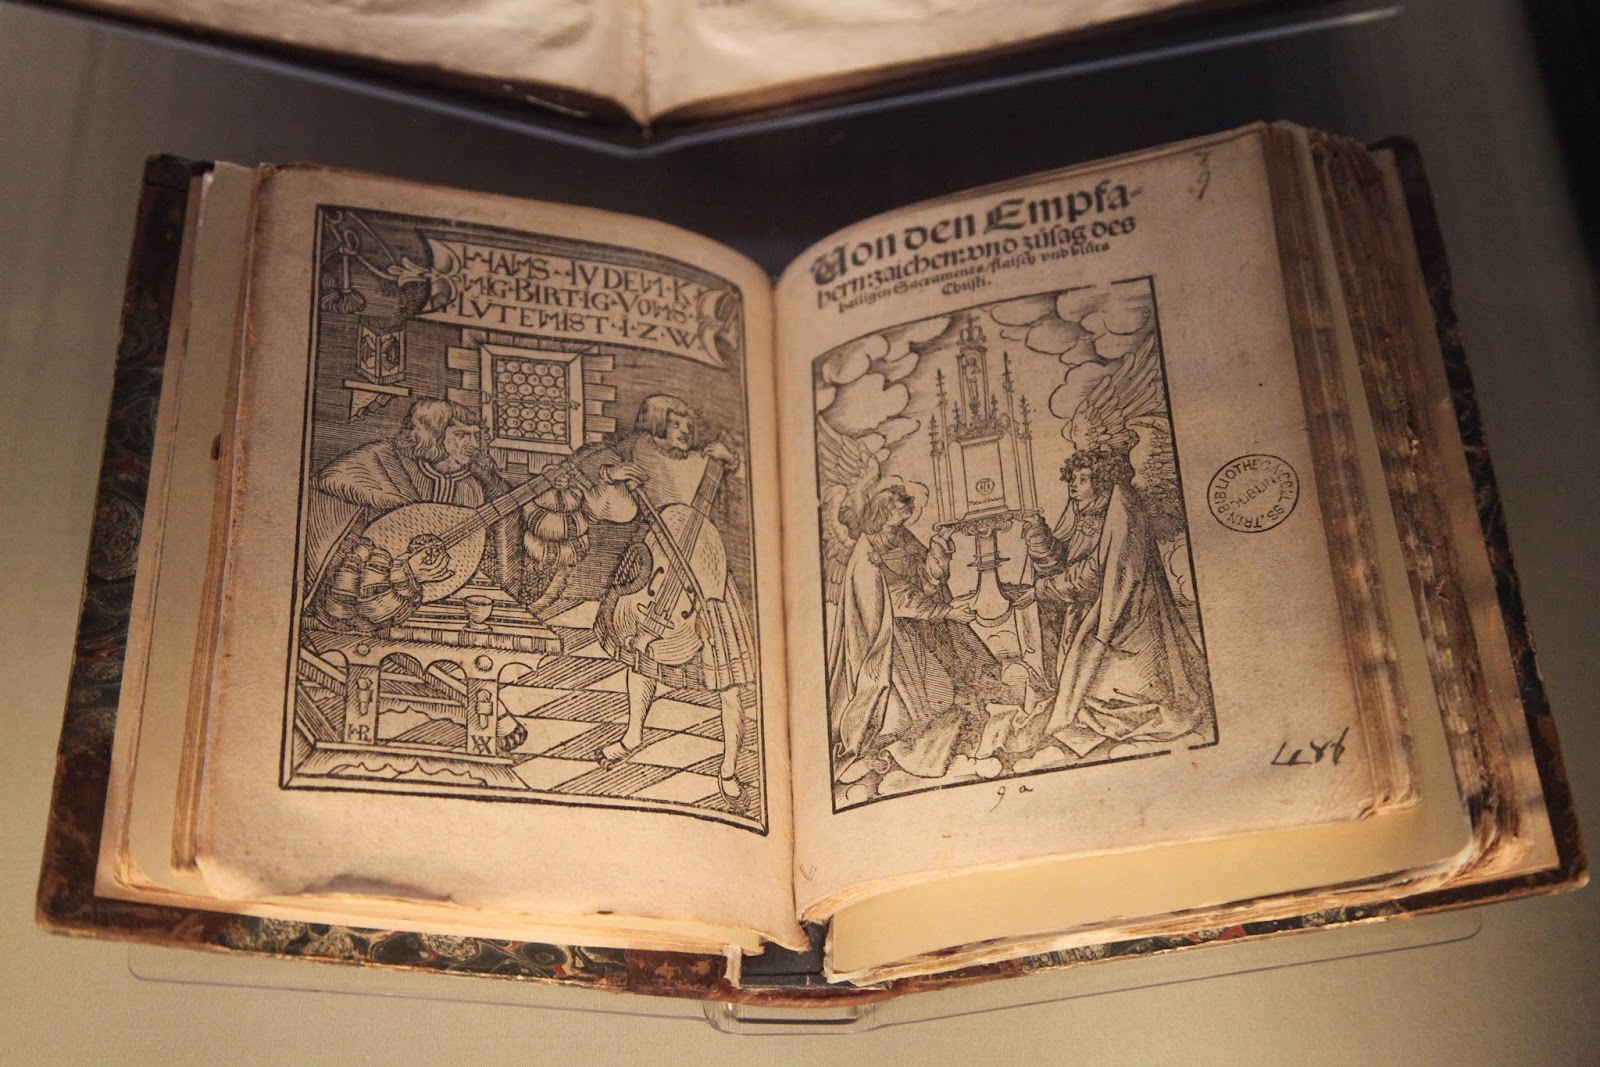 HANS·IVDEN·K
NIG·BIRTIG·VONS·
LVTENIST·I·Z·W
HR
Von den Empfa-
hern: zaichen: vnd zůsag des
heiligen Sacraments/ flaisch vnd blůts
Christi.
BIBLIOTHECA COLL. SS. TRIN.
DUBLIN
9 a